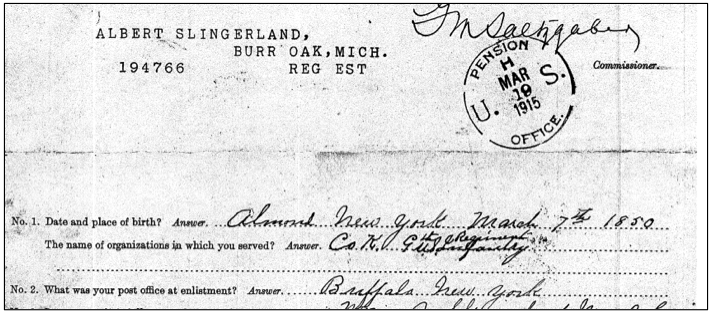 G M Saltzgaber
ALBERT SLINGERLAND,
BURR OAK, MICH.
194766 REG EST
Commissioner.
PENSION
H
MAR
19
1915
U. S.
OFFICE.
No. 1. Date and place of birth? Answer. Almond New York March 7th 1850
The name of organizations in which you served? Answer. Co. K. 6th Regiment
US Infantry
No. 2. What was your post office at enlistment? Answer. Buffalo New York